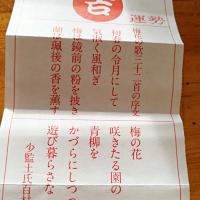 吉
運勢
梅花の歌三十二首の序文
初春の令月にして
気淑く風和ぎ
梅は鏡前の粉を披き
蘭は珮後の香を薫す
梅の花
咲きたる園の
青柳を
かづらにしつつ
遊び暮らさな
少監土氏百村